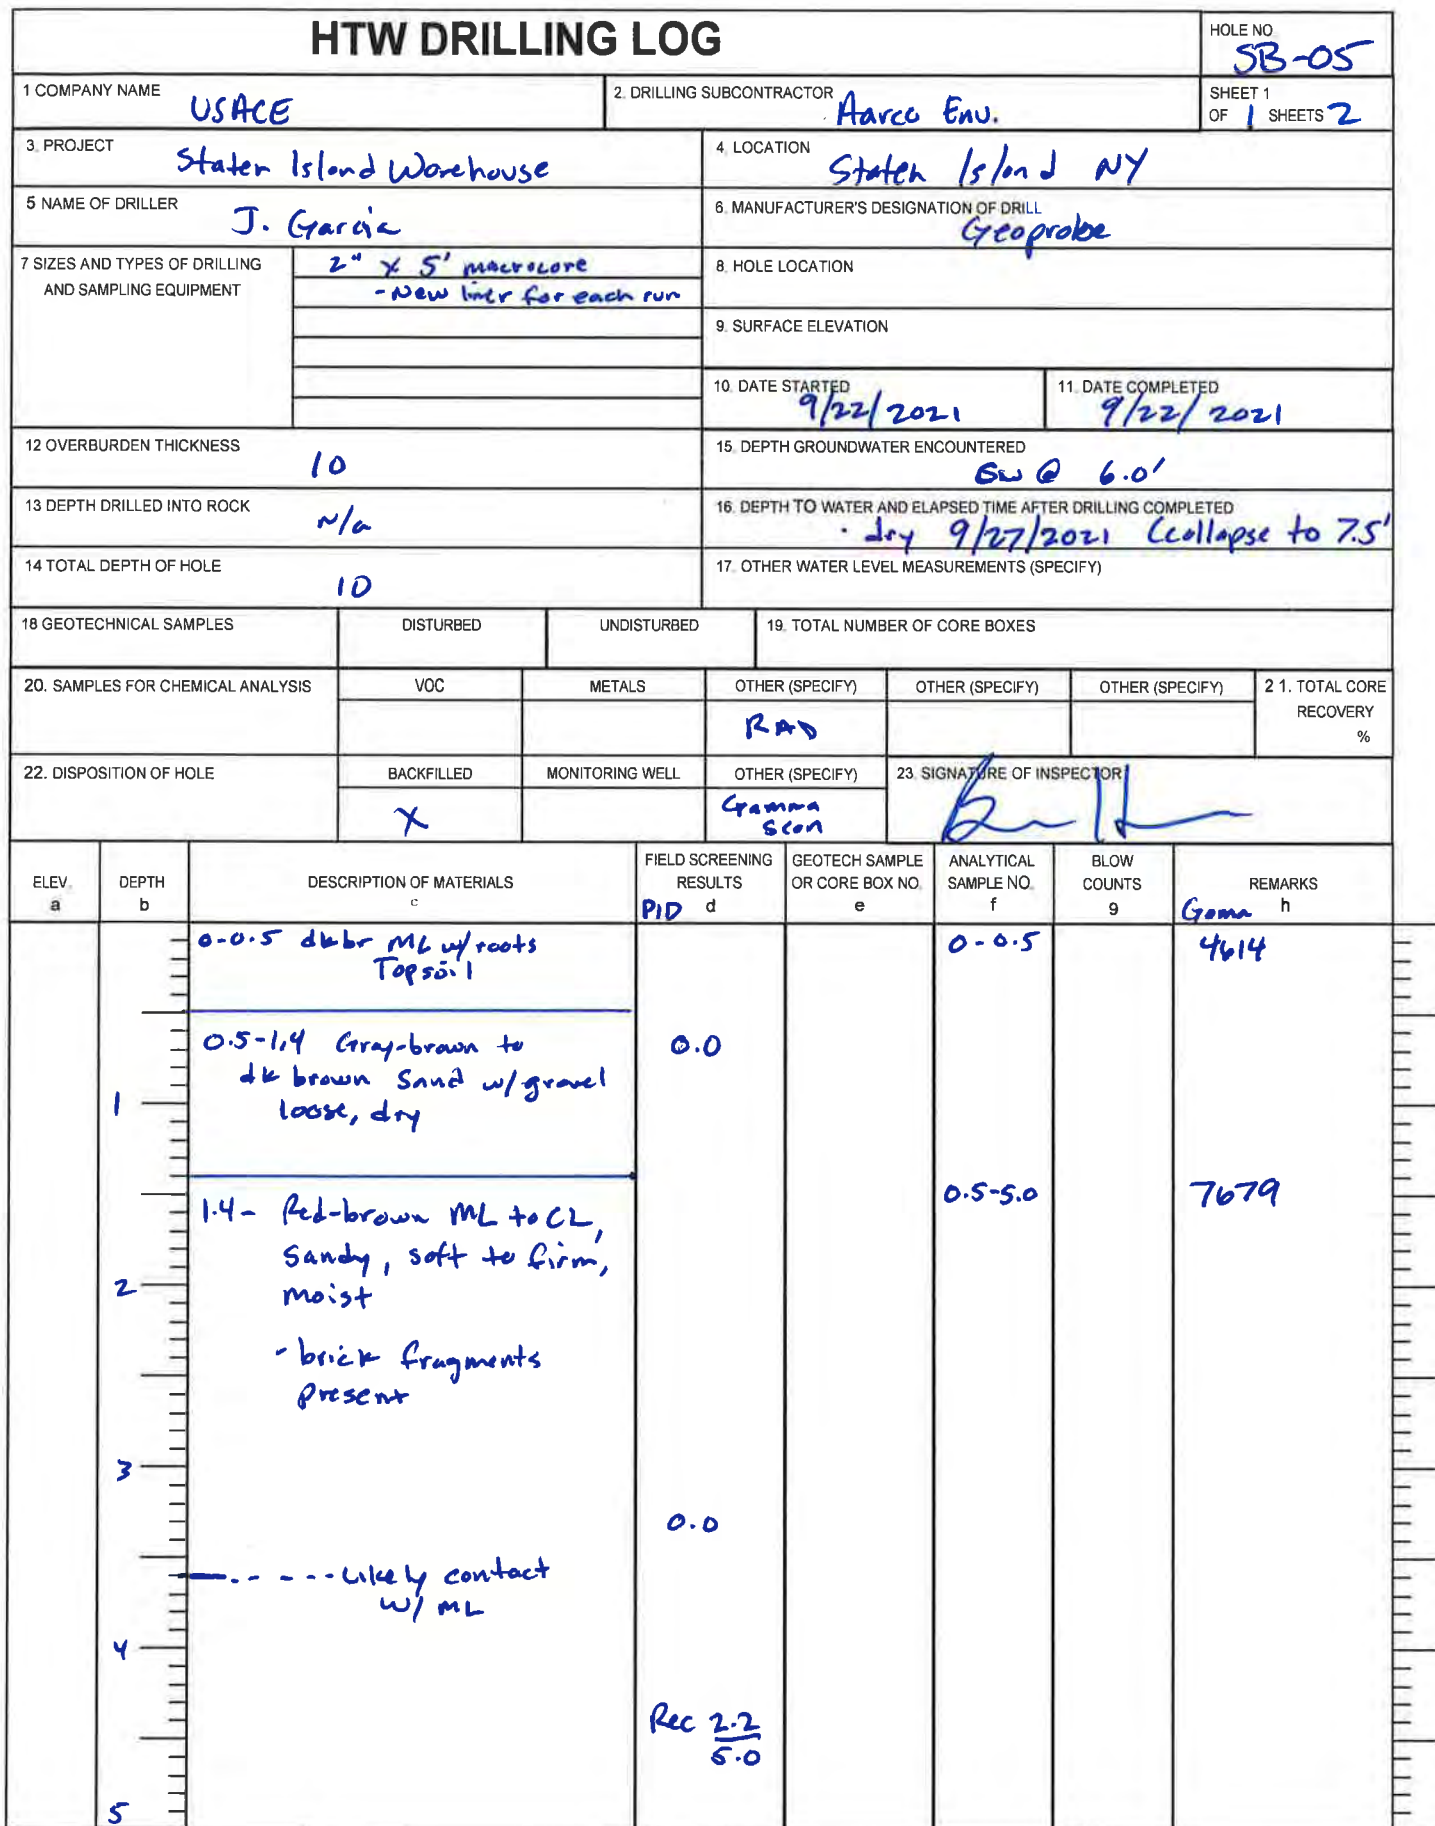 HTW DRILLING LOG
HOLE NO.
SB-05
1 COMPANY NAME
USACE
2. DRILLING SUBCONTRACTOR
Aarco Env.
SHEET 1
OF 1 SHEETS 2
3. PROJECT
Staten Island Warehouse
4. LOCATION
Staten Island NY
5 NAME OF DRILLER
J. Garcia
6. MANUFACTURER'S DESIGNATION OF DRILL
Geoprobe
7 SIZES AND TYPES OF DRILLING
AND SAMPLING EQUIPMENT
2" x 5' macrocore
- New liner for each run
8. HOLE LOCATION
9. SURFACE ELEVATION
10. DATE STARTED
9/22/2021
11. DATE COMPLETED
9/22/2021
12 OVERBURDEN THICKNESS
10
15. DEPTH GROUNDWATER ENCOUNTERED
GW @ 6.0'
13 DEPTH DRILLED INTO ROCK
N/a
16. DEPTH TO WATER AND ELAPSED TIME AFTER DRILLING COMPLETED
dry 9/27/2021 (collapse to 7.5'
14 TOTAL DEPTH OF HOLE
10
17. OTHER WATER LEVEL MEASUREMENTS (SPECIFY)
18 GEOTECHNICAL SAMPLES
DISTURBED
UNDISTURBED
19. TOTAL NUMBER OF CORE BOXES
20. SAMPLES FOR CHEMICAL ANALYSIS
VOC
METALS
OTHER (SPECIFY)
OTHER (SPECIFY)
OTHER (SPECIFY)
2 1. TOTAL CORE
RECOVERY
%
RAD
22. DISPOSITION OF HOLE
BACKFILLED
MONITORING WELL
OTHER (SPECIFY)
23. SIGNATURE OF INSPECTOR
X
Gamma
scan
ELEV.
a
DEPTH
b
DESCRIPTION OF MATERIALS
c
FIELD SCREENING
RESULTS
PID d
GEOTECH SAMPLE
OR CORE BOX NO.
e
ANALYTICAL
SAMPLE NO.
f
BLOW
COUNTS
g
REMARKS
Gama h
0-0.5 dkbr ML w/roots
Topsoil
0-0.5
4614
0.5-1.4 Gray-brown to
dk brown Sand w/gravel
loose, dry
0.0
1
1.4- Red-brown ML to CL,
Sandy, soft to firm,
moist
0.5-5.0
7679
2
- brick fragments
present
3
0.0
---- Likely contact
w/ ML
4
Rec 2.2
5.0
5